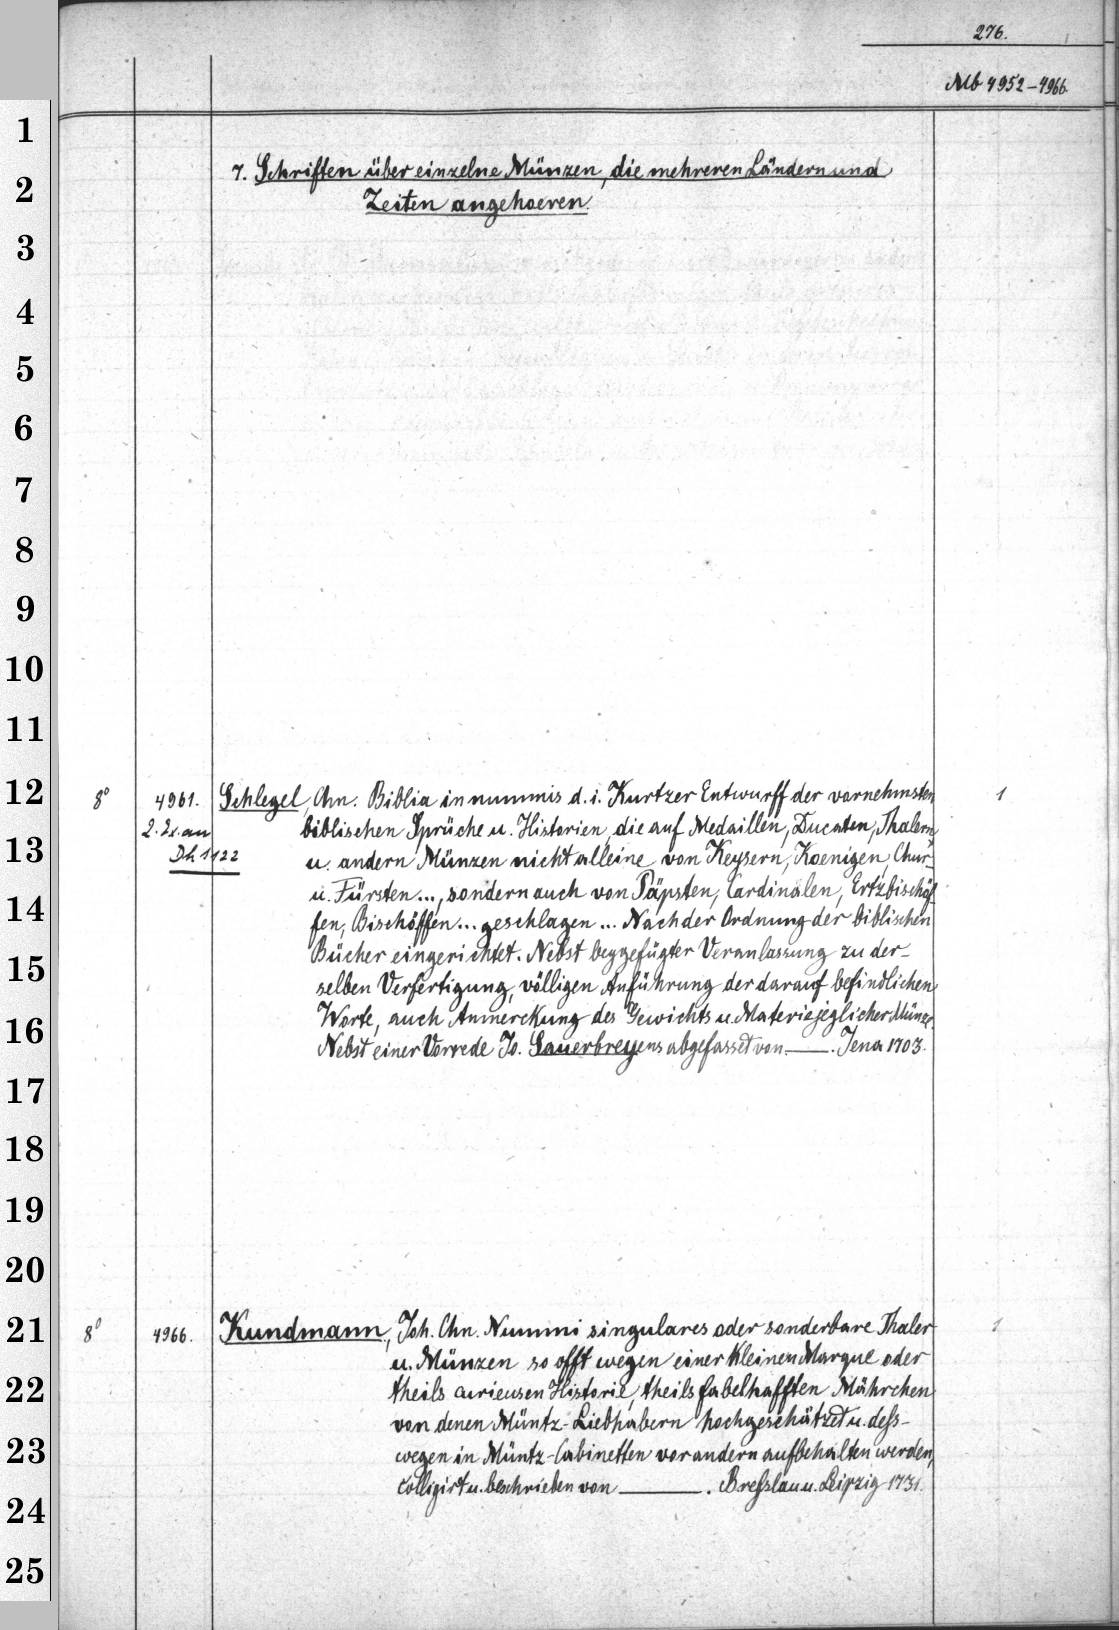 276.
Mb 4952-4966.
7. Schriften über einzelne Münzen, die mehreren Ländern und
Zeiten angehoeren.
1
2
3
4
5
6
7
8
9
10
11
12
13
14
15
16
17
18
19
20
21
22
23
24
25
8° 4961. Schlegel, Chn. Biblia in nummis d. i. Kurtzer Entwurff der vornehmsten 1
2. Ex. an biblischen Sprüche u. Historien, die auf Medaillen, Ducaten, Thalern
Dh 1122 u. andern Münzen nicht alleine von Keysern, Koenigen, Chur-
u. Fürsten..., sondern auch von Päpsten, Cardinälen, Ertzbischöf-
fen, Bischöffen... geschlagen... Nach der Ordnung der biblischen
Bücher eingerichtet. Nebst beygefügter Veranlassung zu der-
selben Verfertigung, völligen Anführung der darauf befindlichen
Worte, auch Anmerckung des Gewichts u. Materie jeglicher Münze.
Nebst einer Vorrede Jo. Sauerbreyens abgefasset von ——. Jena 1703.
8° 4966. Kundmann, Joh. Chn. Nummi singulares oder sonderbare Thaler 1
u. Münzen so offt wegen einer kleinen Marque oder
theils curieusen Historie, theils fabelhafften Mährchen
von denen Müntz-Liebhabern hochgeschätzet u. deß-
wegen in Müntz-Cabinetten vor andern aufbehalten werden,
colligirt u. beschrieben von ——. Breßlau u. Leipzig 1731.